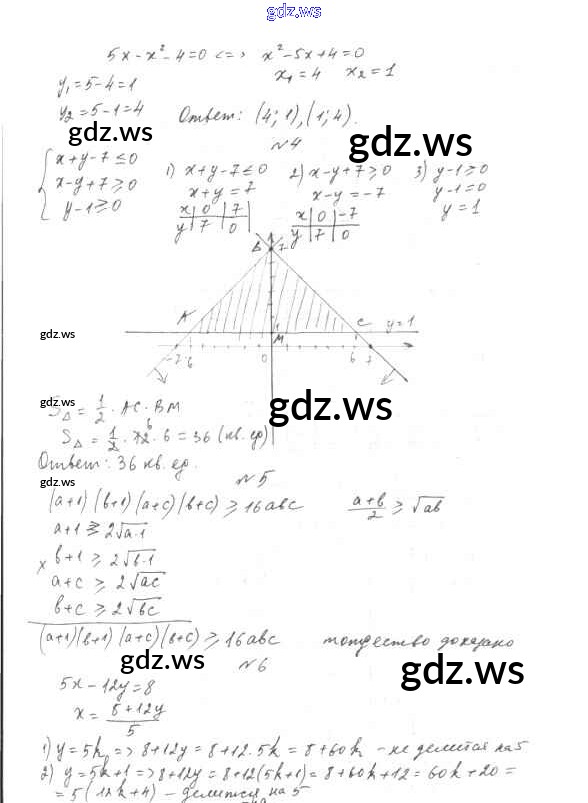 gdz.ws
5x-x²-4=0 <=> x²-5x+4=0
y₁=5-4=1 x₁=4 x₂=1
y₂=5-1=4 Ответ: (4;1),(1;4).
gdz.ws
gdz.ws
№4
{ x+y-7≤0
x-y+7≥0
y-1≥0
1) x+y-7≤0 2) x-y+7≥0 3) y-1≥0
x+y=7 x-y=-7 y-1=0
x | 0 | 7 y=1
y | 7 | 0
x | 0 | -7
y | 7 | 0
B 7
A C y=1
gdz.ws
1 M
-7 -6 0 6 7
gdz.ws
gdz.ws
S△ = 1/2 · AC · BM
S△ = 1/2 · 12 · 6 = 36 (кв. ед)
6
Ответ: 36 кв. ед.
gdz.ws
№5
(a+1)(b+1)(a+c)(b+c) ≥ 16abc (a+b)/2 ≥ √ab
a+1 ≥ 2√a·1
x b+1 ≥ 2√b·1
a+c ≥ 2√ac
b+c ≥ 2√bc
(a+1)(b+1)(a+c)(b+c) ≥ 16abc тождество доказано
gdz.ws
gdz.ws
№6
5x-12y=8
x = (8+12y)/5
1) y=5k => 8+12y = 8+12·5k = 8+60k - не делится на 5
2) y=5k+1 => 8+12y = 8+12(5k+1) = 8+60k+12 = 60k+20 =
= 5(12k+4) - делится на 5